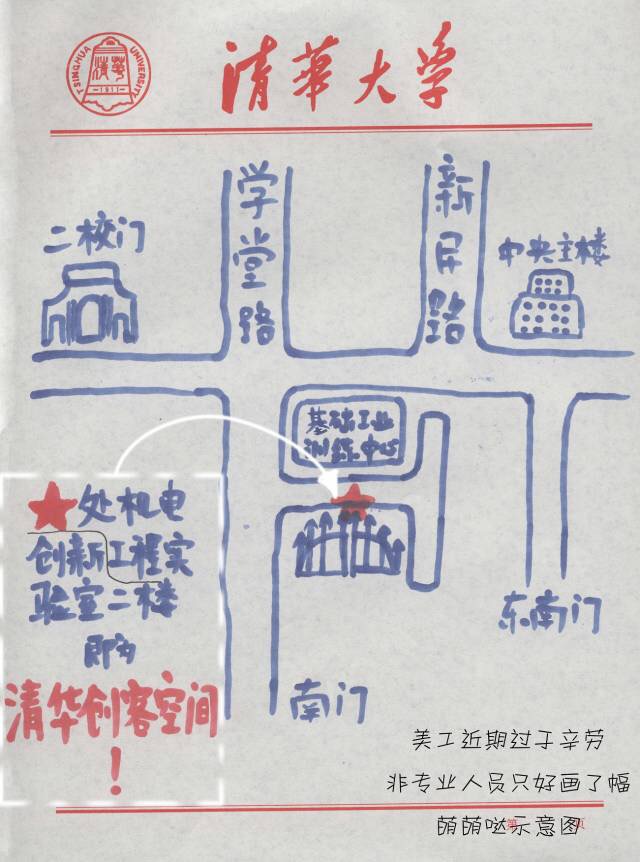 TSINGHUA UNIVERSITY
清華
1911
清華大学
学堂路
新民路
二校门
中央主楼
基础工业
训练中心
★处机电
创新工程实
验室二楼
即为
清华创客空间
！
东南门
南门
美工近期过于辛劳
非专业人员只好画了幅
萌萌哒示意图
第 页